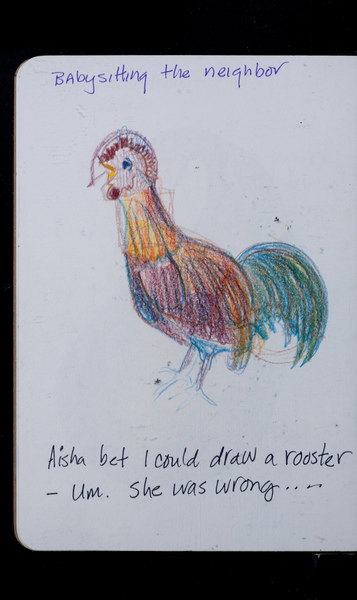 Babysitting the neighbor
Aisha bet I could draw a rooster
- Um. She was wrong...-